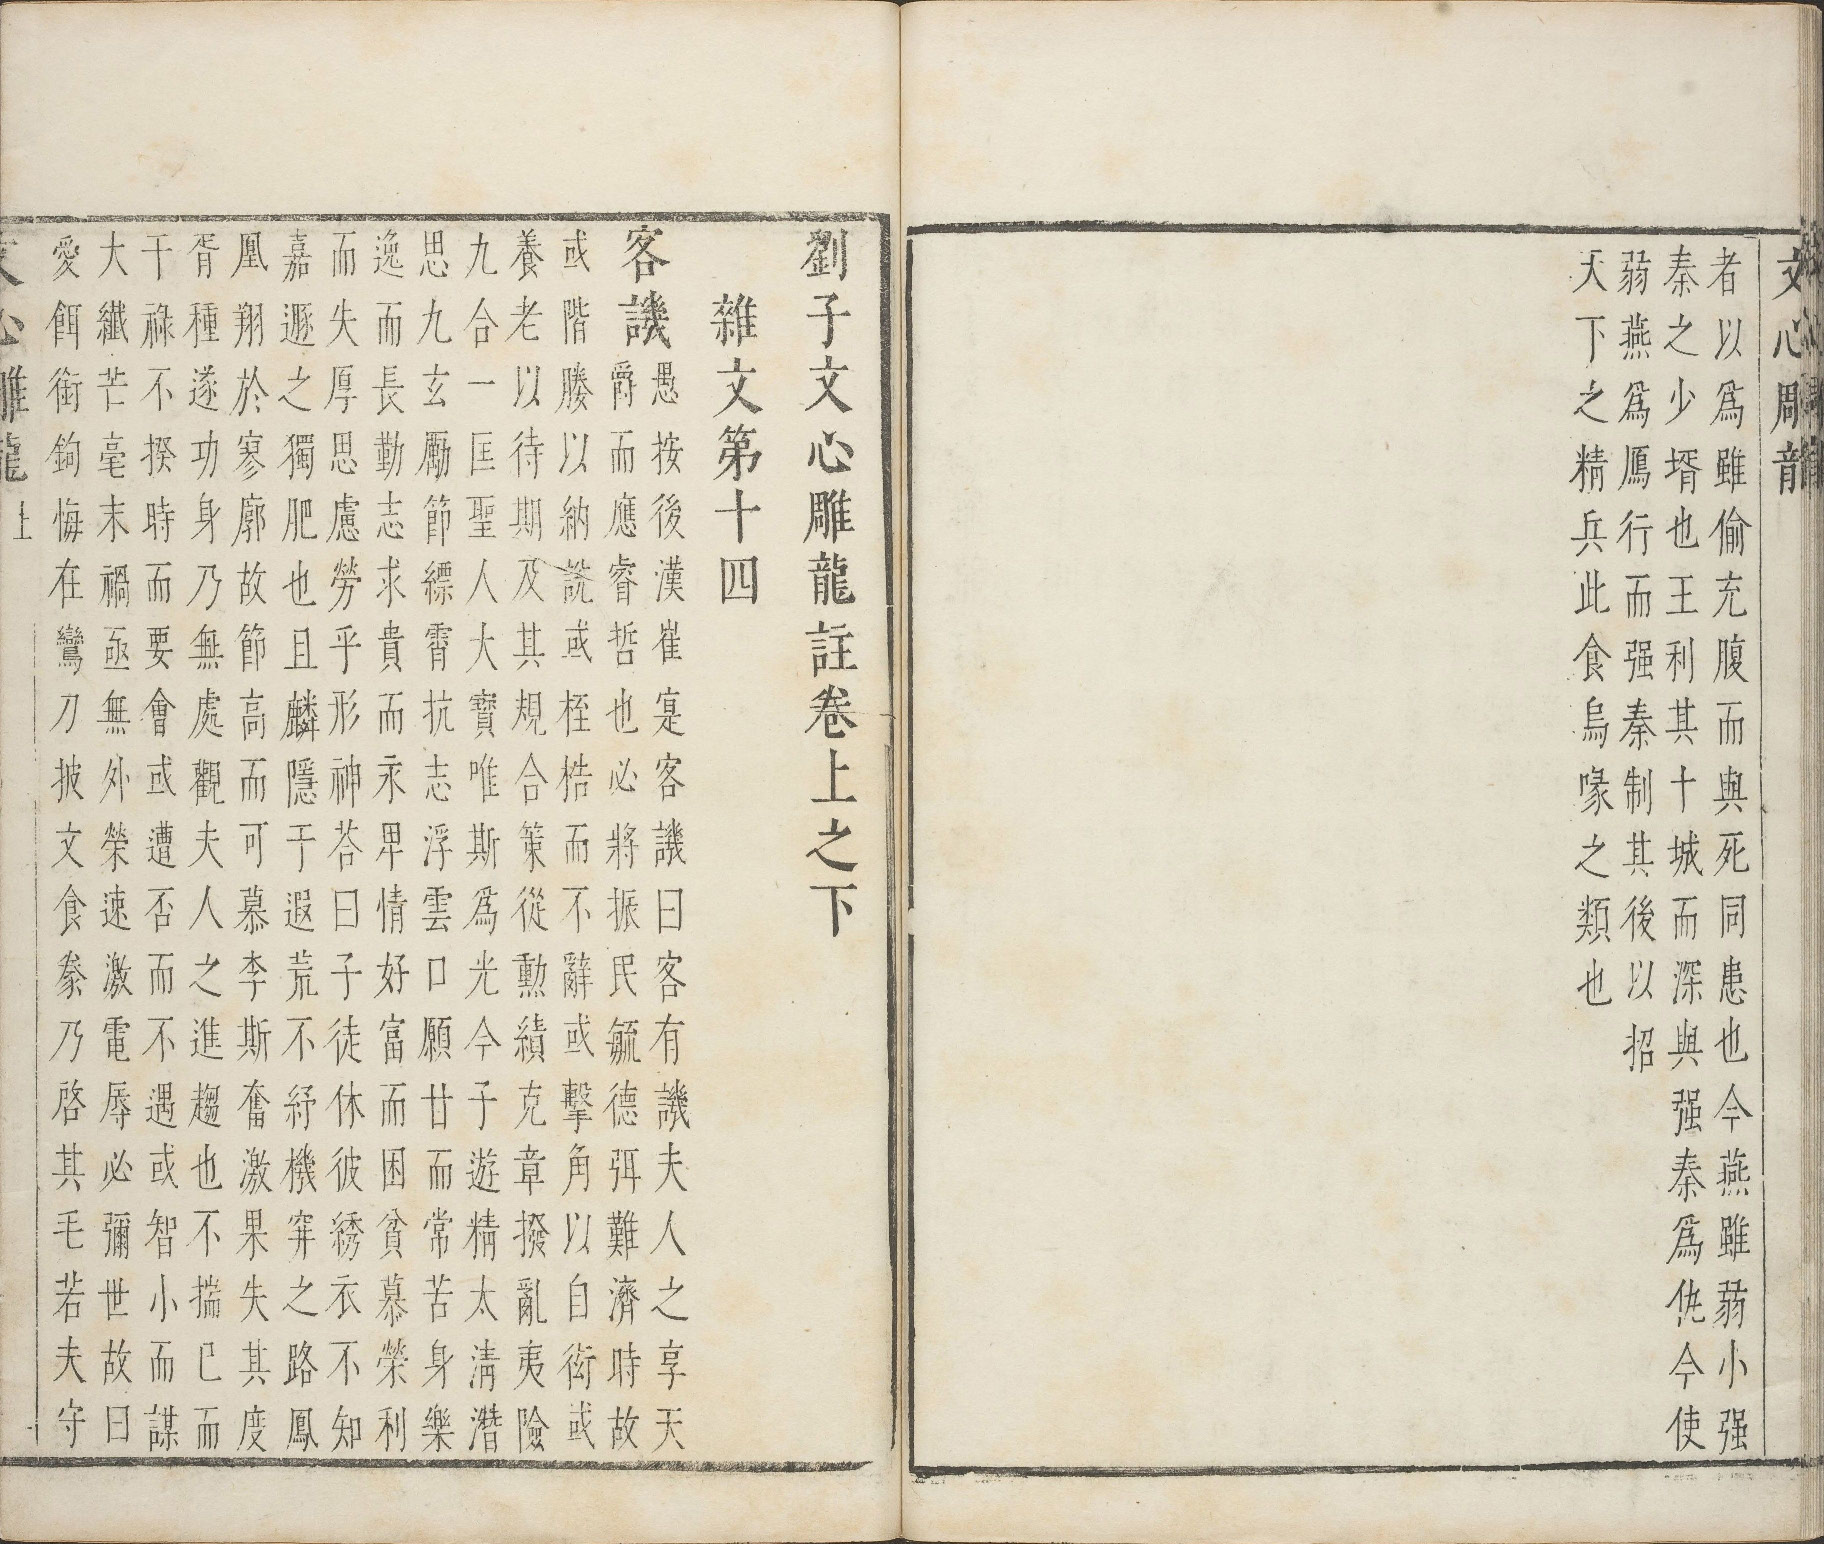 文心雕龍
者以爲雖偷充腹而與死同患也今燕雖弱小强
秦之少壻也王利其十城而深與强秦爲仇今使
弱燕爲鴈行而强秦制其後以招
天下之精兵此食烏喙之類也
劉子文心雕龍註卷上之下
雜文第十四
客譏
愚按後漢崔寔客譏曰客有譏夫人之享天
爵而應睿哲也必將振民毓德弭難濟時故
或階媵以納說或桎梏而不辭或擊角以自衒或
養老以待期及其規合策從勳績克章撥亂夷險
九合一匡聖人大寶唯斯爲光今子遊精太清潛
思九玄勵節縹霄抗志浮雲口願甘而常苦身樂
逸而長勤志求貴而永卑情好富而困貧慕榮利
而失厚思慮勞乎形神荅曰子徒休彼綉衣不知
嘉遯之獨肥也且麟隱于遐荒不紆機穽之路鳳
凰翔於寥廓故節高而可慕李斯奮激果失其度
胥種遂功身乃無處觀夫人之進趨也不揣已而
干祿不揆時而要會或遭否而不遇或智小而謀
大纖芒毫末禍亟無外榮速激電辱必彌世故曰
愛餌銜鉤悔在鸞刀披文食豢乃啓其毛若夫守
文心雕龍 上